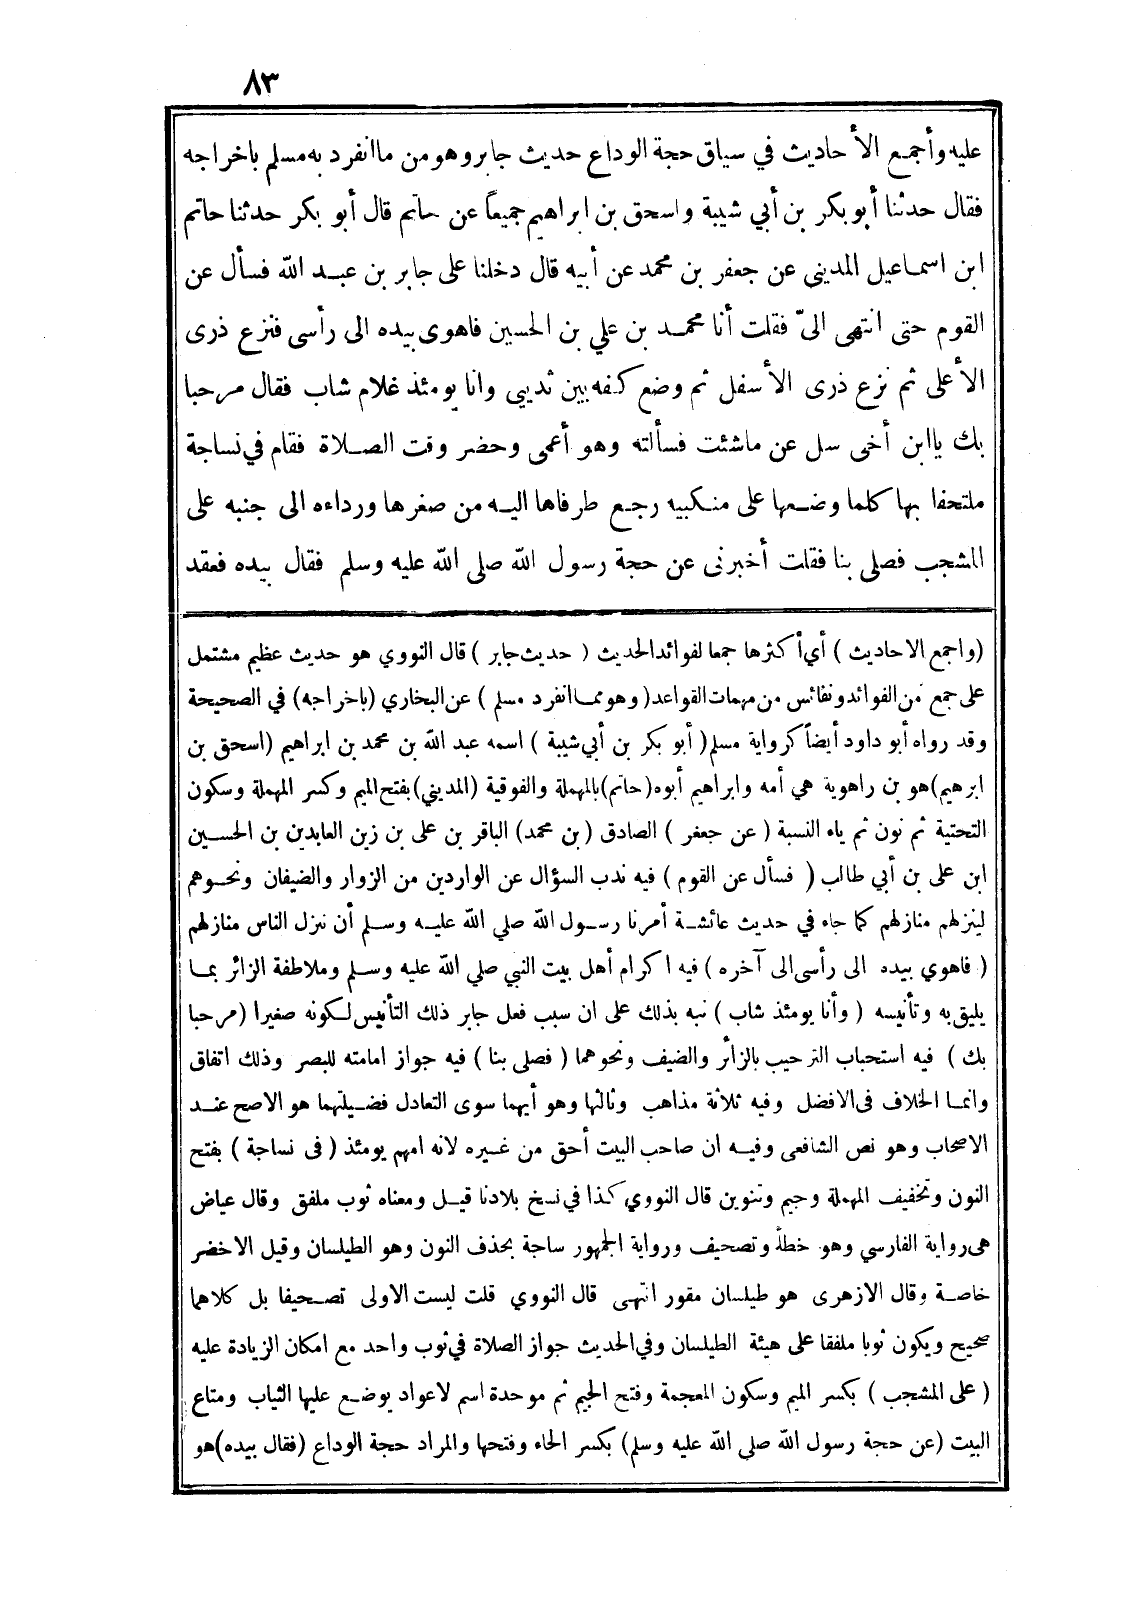 ٨٣
عليه وأجمع الأحاديث في سياق حجة الوداع حديث جابر وهو من ما انفرد به مسلم باخراجه
فقال حدثنا أبو بكر بن أبي شيبة واسحق بن ابراهيم جميعاً عن حاتم قال أبو بكر حدثنا حاتم
ابن اسماعيل المديني عن جعفر بن محمد عن أبيه قال دخلنا على جابر بن عبد الله فسأل عن
القوم حتى انتهى الىّ فقلت أنا محمد بن علي بن الحسين فاهوى بيده الى رأسى فنزع ذرى
الأعلى ثم نزع ذرى الأسفل ثم وضع كفه بين ثديي وانا يومئذ غلام شاب فقال مرحبا
بك ياابن أخى سل عن ماشئت فسألته وهو أعمى وحضر وقت الصلاة فقام في نساجة
ملتحفا بها كلما وضعها على منكبيه رجع طرفاها اليه من صغرها ورداءه الى جنبه على
المشجب فصلى بنا فقلت أخبرنى عن حجة رسول الله صلى الله عليه وسلم فقال بيده فعقد
(واجمع الاحاديث) أي أكثرها جمعا لفوائد الحديث (حديث جابر) قال النووي هو حديث عظيم مشتمل
على جمع من الفوائد ونفائس من مهمات القواعد (وهو مما انفرد مسلم) عن البخاري (باخراجه) في الصحيحة
وقد رواه أبو داود أيضاً كرواية مسلم (أبو بكر بن أبي شيبة) اسمه عبد الله بن محمد بن ابراهيم (اسحق بن
ابرهيم) هو بن راهوية هي أمه وابراهيم أبوه (حاتم) بالمهملة والفوقية (المديني) بفتح الميم وكسر المهملة وسكون
التحتية ثم نون ثم ياء النسبة (عن جعفر) الصادق (بن محمد) الباقر بن على بن زين العابدين بن الحسين
ابن على بن أبي طالب (فسأل عن القوم) فيه ندب السؤال عن الواردين من الزوار والضيفان ونحوهم
لينزلهم منازلهم كما جاء في حديث عائشة أمرنا رسول الله صلي الله عليه وسلم أن ننزل الناس منازلهم
(فاهوي بيده الى رأسى الى آخره) فيه اكرام أهل بيت النبي صلي الله عليه وسلم وملاطفة الزائر بما
يليق به وتأنيسه (وأنا يومئذ شاب) نبه بذلك على ان سبب فعل جابر ذلك التأنيس لكونه صغيرا (مرحبا
بك) فيه استحباب الترحيب بالزائر والضيف ونحوهما (فصلى بنا) فيه جواز امامته للبصر وذلك اتفاق
وانما الخلاف فى الافضل وفيه ثلاثة مذاهب وثالثها وهو أيهما سوى التعادل فضيلتهما هو الاصح عند
الاصحاب وهو نص الشافعى وفيه ان صاحب البيت أحق من غيره لانه امهم يومئذ (فى نساجة) بفتح
النون وتخفيف المهملة وجيم وتنوين قال النووي كذا في نسخ بلادنا قيل ومعناه ثوب ملفق وقال عياض
هى رواية الفارسي وهو خطأ وتصحيف ورواية الجمهور ساجة بحذف النون وهو الطيلسان وقيل الاخضر
خاصة وقال الازهرى هو طيلسان مقور انتهى قال النووي قلت ليست الاولى تصحيفا بل كلاهما
صحيح ويكون ثوبا ملفقا على هيئة الطيلسان وفي الحديث جواز الصلاة في ثوب واحد مع امكان الزيادة عليه
(على المشجب) بكسر الميم وسكون المعجمة وفتح الجيم ثم موحدة اسم لاعواد يوضع عليها الثياب ومتاع
البيت (عن حجة رسول الله صلى الله عليه وسلم) بكسر الحاء وفتحها والمراد حجة الوداع (فقال بيده) هو